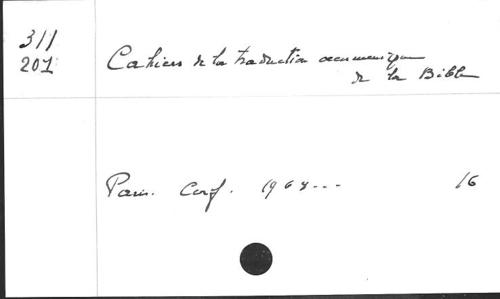 311
201
Cahiers de la traduction oecuménique
de la Bible
Paris. Cerf. 1968...
16